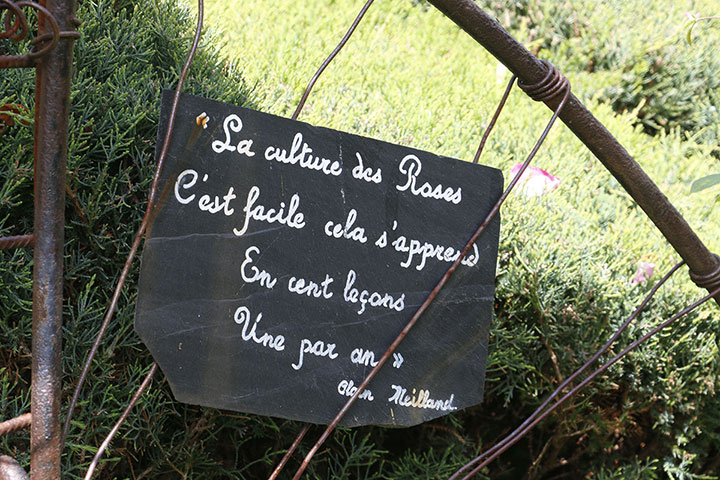 “ La culture des Roses
C'est facile cela s'apprend
En cent leçons
Une par an »
Alain Meilland